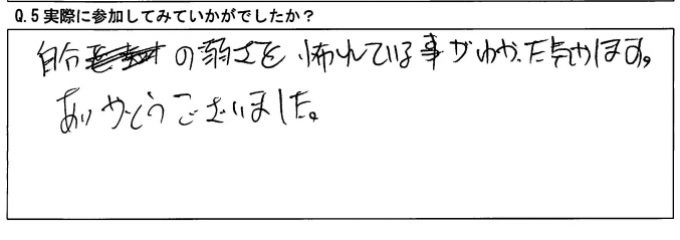 Q.5 実際に参加してみていかがでしたか？
自分の弱さを怖れている事がわかった気がします。
ありがとうございました。